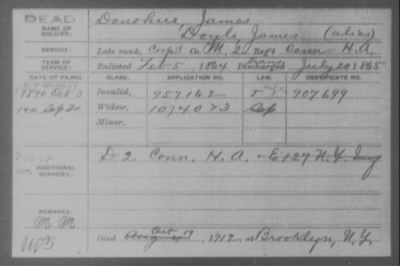 DEAD
NAME OF SOLDIER: Donohue, James
Doyle, James (alias)
SERVICE: Late rank, Corp'l Co. M, 2 Reg't Conn. H.A.
TERM OF SERVICE: Enlisted Feb 5, 1864 Discharged July 20 1865
DATE OF FILING. CLASS. APPLICATION NO. LAW. CERTIFICATE NO.
1890 3 Invalid, 957162 907699
Sep 20 Widow, 1074023
Minor,
ADDITIONAL SERVICES: D 2 Conn. H.A. & E 127 N.Y. Inf
REMARKS:
Died Oct 17, 1919, at Brooklyn, N.Y.